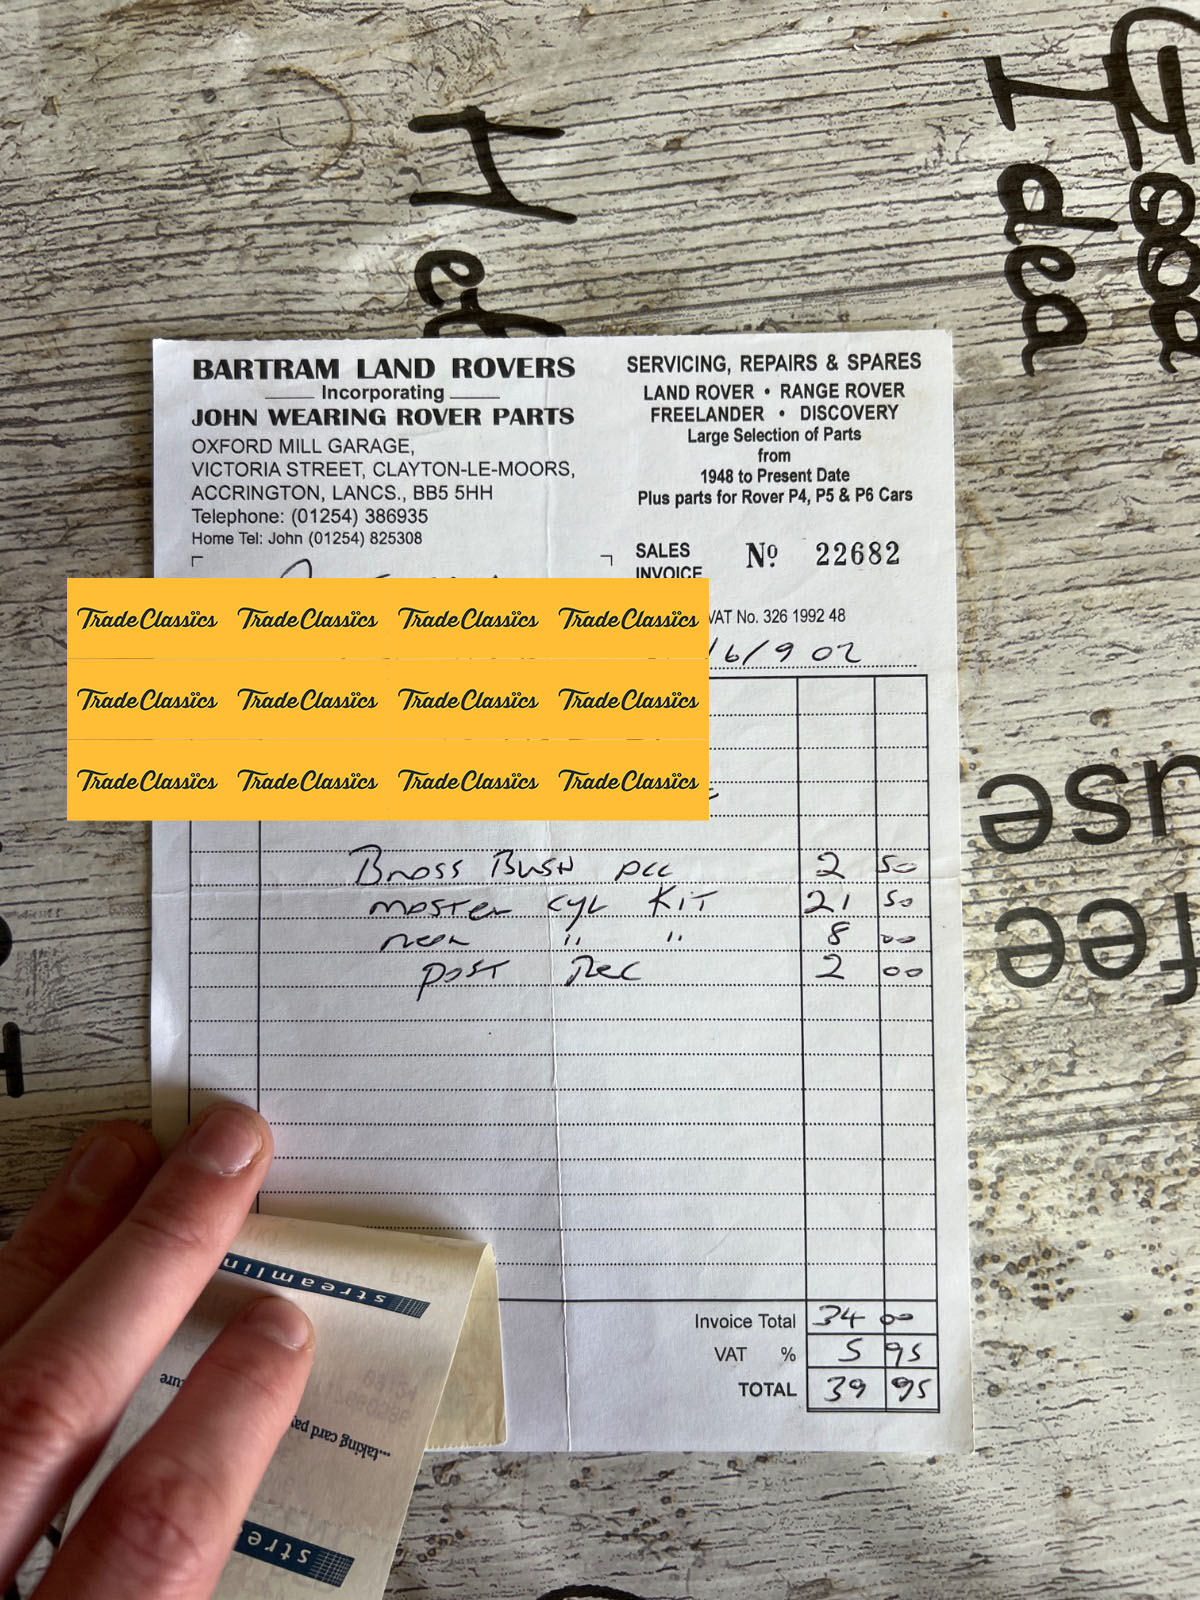 I
Good
I dea
BARTRAM LAND ROVERS
Incorporating
JOHN WEARING ROVER PARTS
OXFORD MILL GARAGE,
VICTORIA STREET, CLAYTON-LE-MOORS,
ACCRINGTON, LANCS., BB5 5HH
Telephone: (01254) 386935
Home Tel: John (01254) 825308
SERVICING, REPAIRS & SPARES
LAND ROVER • RANGE ROVER
FREELANDER • DISCOVERY
Large Selection of Parts
from
1948 to Present Date
Plus parts for Rover P4, P5 & P6 Cars
SALES INVOICE Nº 22682
VAT No. 326 1992 48
/6/9 02
Trade Classics Trade Classics Trade Classics Trade Classics
Trade Classics Trade Classics Trade Classics Trade Classics
Trade Classics Trade Classics Trade Classics Trade Classics
Bross Bush 2 50
Master Cyl Kit 21 50
" " 8 00
Post Rec 2 00
Invoice Total 34 00
VAT % 5 95
TOTAL 39 95
streamlin
...taking card pay
stre
use
fee